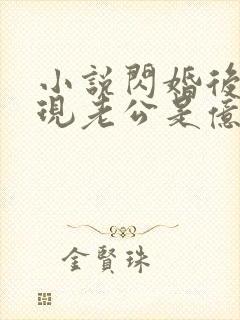 小説閃婚後
現老公是億
金賢珠